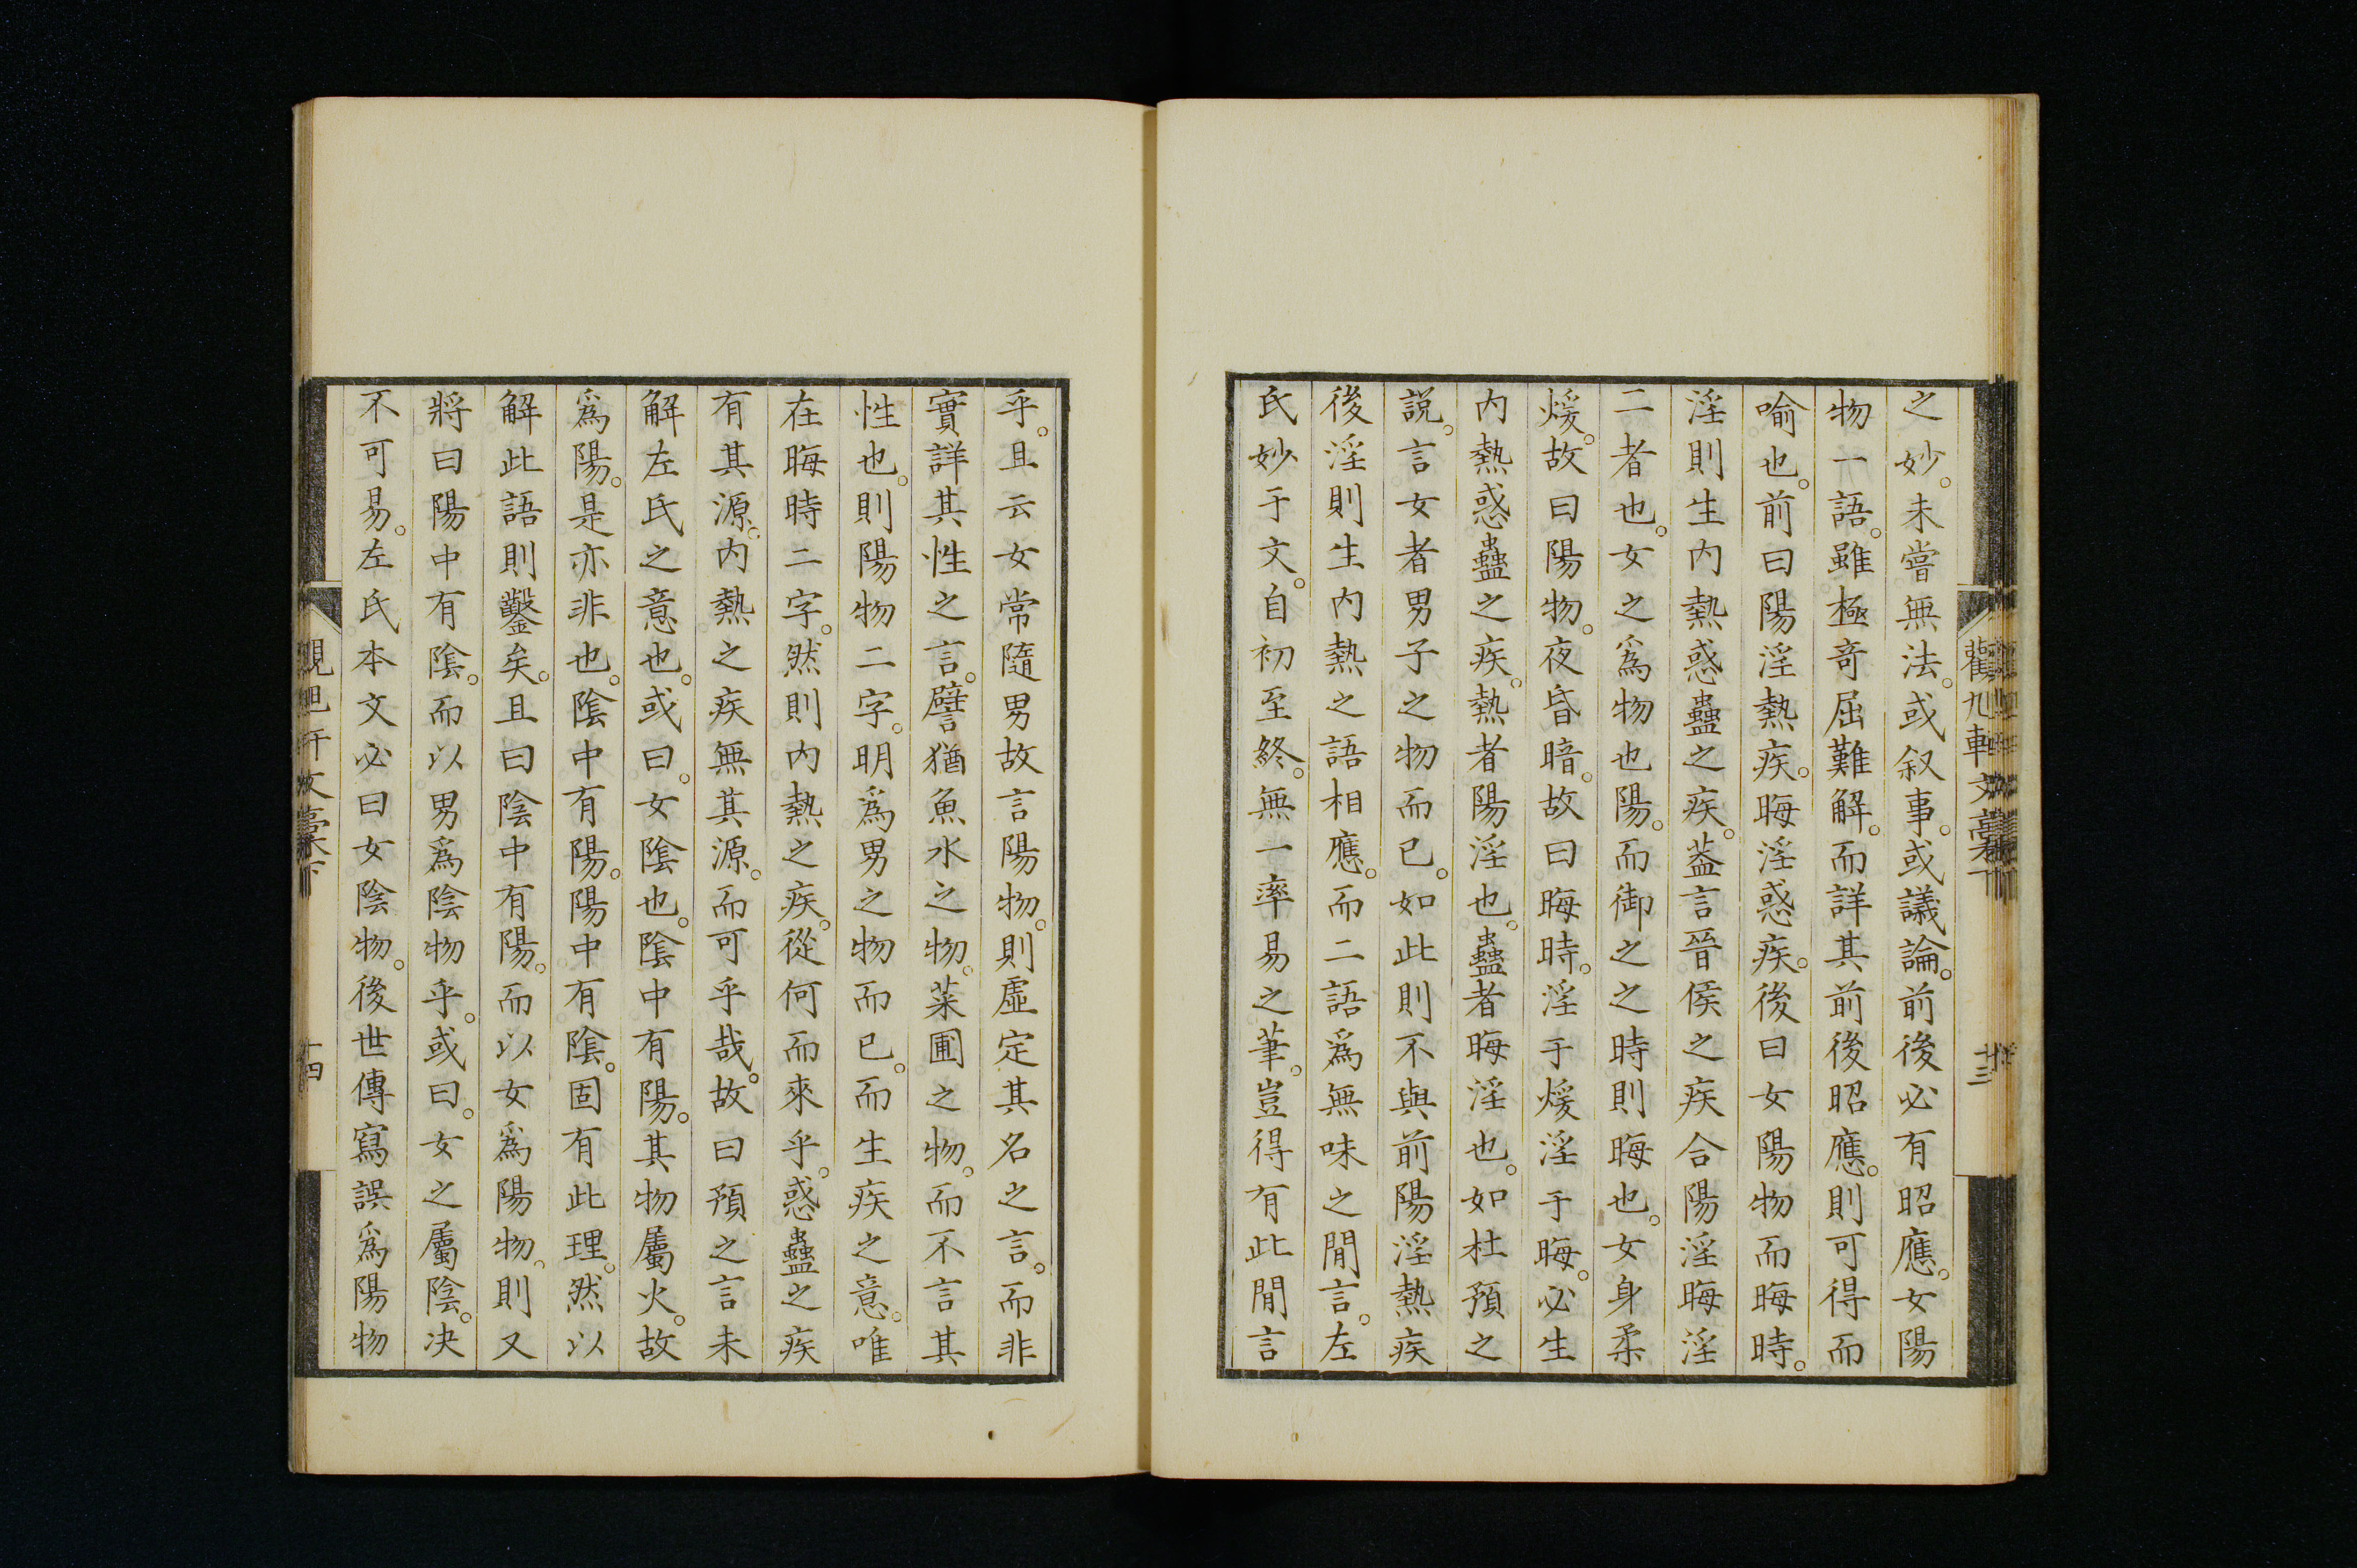 之妙。未嘗無法。或叙事。或議論。前後必有昭應。女陽
物一語。雖極奇屈難解。而詳其前後昭應。則可得而
喻也。前曰陽淫熱疾。晦淫惑疾。後曰女陽物而晦時。
淫則生内熱惑蠱之疾。蓋言晉侯之疾合陽淫晦淫
二者也。女之爲物也陽。而御之之時則晦也。女身柔
煖。故曰陽物。夜昏暗。故曰晦時。淫于煖淫于晦。必生
内熱惑蠱之疾。熱者陽淫也。蠱者晦淫也。如杜預之
説。言女者男子之物而已。如此則不與前陽淫熱疾
後淫則生内熱之語相應。而二語爲無味之閒言。左
氏妙于文。自初至終。無一率易之筆。豈得有此閒言
乎。且云女常隨男故言陽物。則虛定其名之言。而非
實詳其性之言。譬猶魚水之物。菜圃之物。而不言其
性也。則陽物二字。明爲男之物而已。而生疾之意。唯
在晦時二字。然則内熱之疾。從何而來乎。惑蠱之疾
有其源。内熱之疾無其源。而可乎哉。故曰預之言未
解左氏之意也。或曰。女陰也。陰中有陽。其物屬火。故
爲陽。是亦非也。陰中有陽。陽中有陰。固有此理。然以
解此語則鑿矣。且曰陰中有陽。而以女爲陽物。則又
將曰陽中有陰。而以男爲陰物乎。或曰。女之屬陰。决
不可易。左氏本文必曰女陰物。後世傳寫誤爲陽物
十四